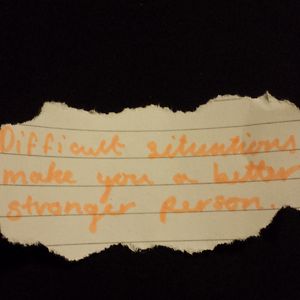 Difficult situations
make you a better
stronger person.